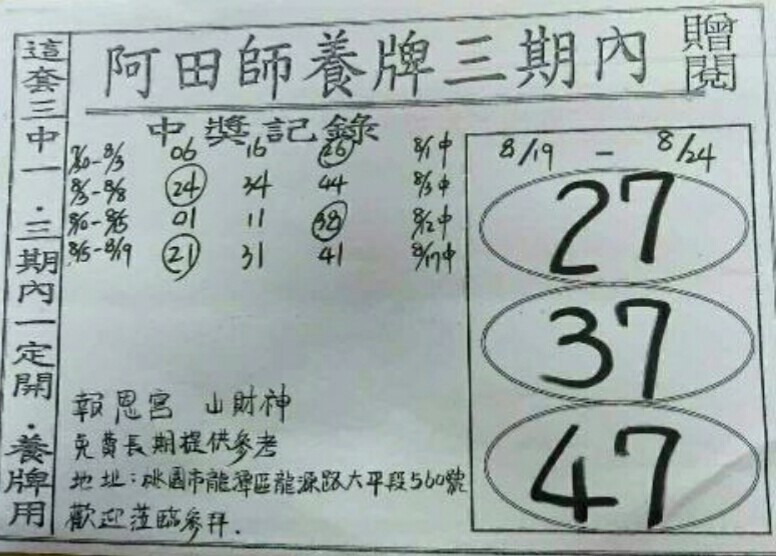 阿田師養牌三期內
贈閱
這套三中一.三期內一定開.養牌用
中獎記錄
7/30-8/3 06 16 26 8/1中
8/3-8/8 24 34 44 8/3中
8/10-8/15 01 11 38 8/12中
8/15-8/19 21 31 41 8/17中
8/19 - 8/24
27
37
47
報恩宮 山財神
免費長期提供參考
地址:桃園市龍潭區龍源路大平段560號
歡迎蒞臨參拜.